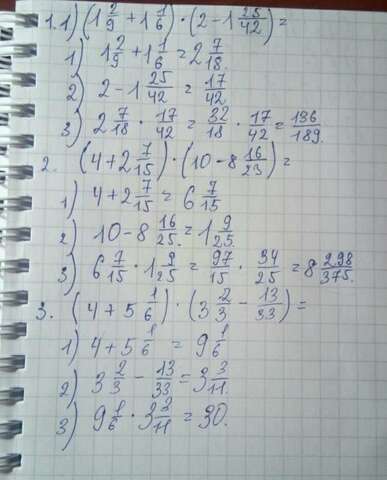 1. 1) (1 2/9 + 1 1/6) · (2 - 1 25/42) =
1) 1 2/9 + 1 1/6 = 2 7/18.
2) 2 - 1 25/42 = 17/42.
3) 2 7/18 · 17/42 = 32/18 · 17/42 = 136/189.
2. (4 + 2 7/15) · (10 - 8 16/23) =
1) 4 + 2 7/15 = 6 7/15
2) 10 - 8 16/25. = 1 9/25.
3) 6 7/15 · 1 9/25 = 97/15 · 34/25 = 8 298/375.
3. (4 + 5 1/6) · (3 2/3 - 13/33) =
1) 4 + 5 1/6 = 9 1/6
2) 3 2/3 - 13/33 = 3 3/11.
3) 9 1/6 · 3 3/11 = 30.